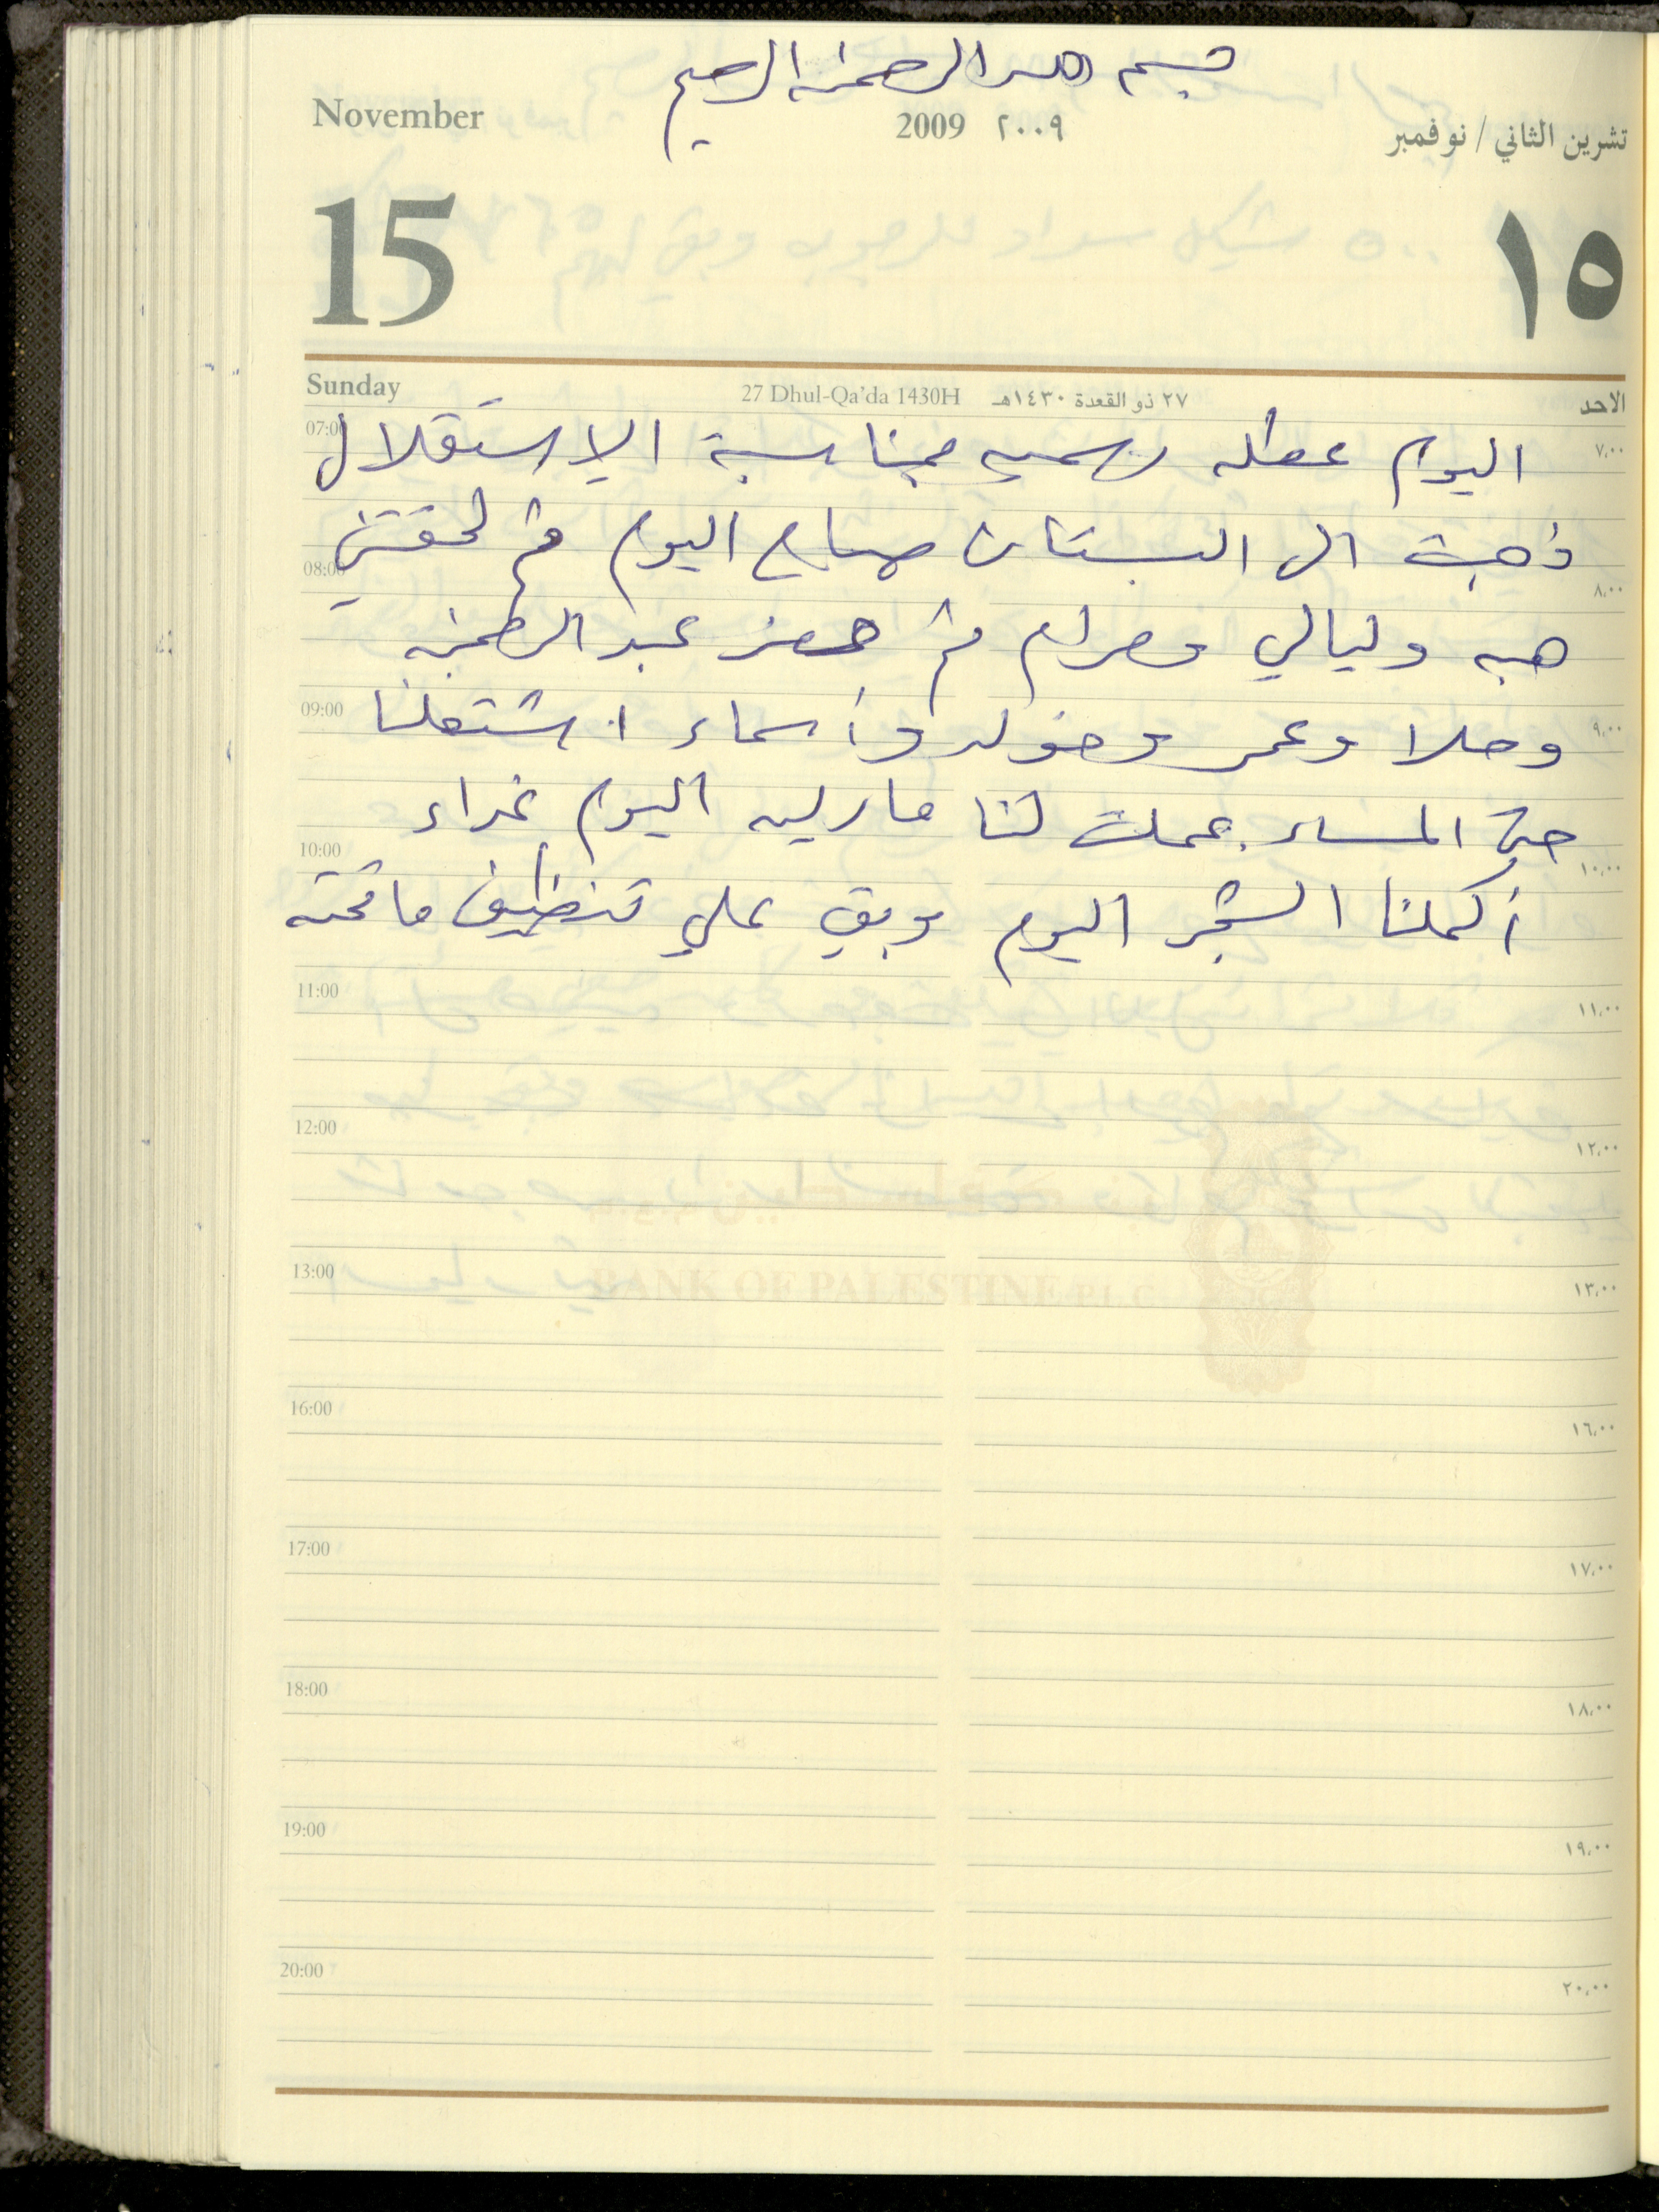 بسم الله الرحمن الرحيم
November
2009 ٢٠٠٩
تشرين الثاني / نوفمبر
15
١٥
Sunday
27 Dhul-Qa'da 1430H ٢٧ ذو القعدة ١٤٣٠هـ
الاحد
07:00 ٧,٠٠
اليوم عطله رسميه بمناسبة الاستقلال
ذهبت الى البستان صباح اليوم ثم لحقتني
08:00 ٨,٠٠
هبه وليالي ومرام ثم حضر عبد الرحمن
09:00 ٩,٠٠
وحلا وعمر وخوله وأسماء اشتغلنا
حتى المساء. عملت لنا ماريه اليوم غداء
10:00 ١٠,٠٠
أكملنا الشجر اليوم وبقي علي تنظيف ما تحته
11:00 ١١,٠٠
12:00 ١٢,٠٠
BANK OF PALESTINE P.L.C
13:00 ١٣,٠٠
16:00 ١٦,٠٠
17:00 ١٧,٠٠
18:00 ١٨,٠٠
19:00 ١٩,٠٠
20:00 ٢٠,٠٠